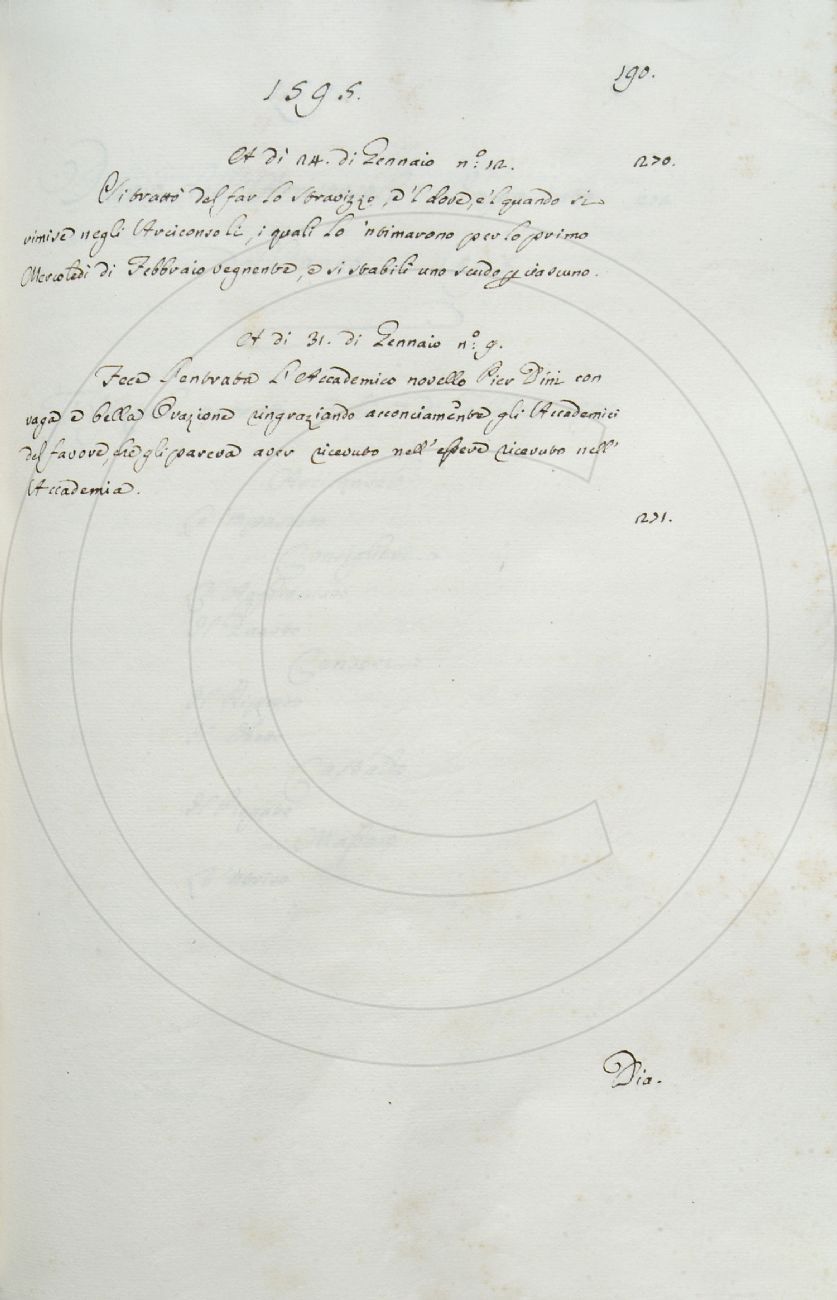 190.
1595.
A dì 24. di Gennaio n.º 12. 270.
Si trattò del far lo stravizzo, e 'l dove, e 'l quando si
rimise negli Arciconsoli, i quali lo 'ntimarono per lo primo
Mercoledì di Febbraio vegnente, e si stabilì uno scudo p ciascuno.
A di 31. di Gennaio n.º 9.
Fece l'entrata l'Accademico novello Pier Dini con
vaga e bella Orazione ringraziando acconciamente gli Accademici
del favore, che gli pareva aver ricevuto nell'essere ricevuto nell'
Accademia.
271.
Dia.